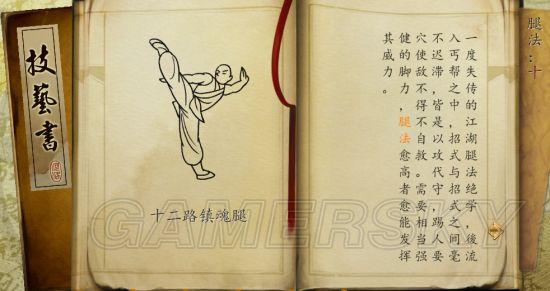 腿法：十
一度失传的江湖腿法绝学，後流
入丐帮之中，招式与招式之间毫
不迟滞，皆是以攻代守，踢人要
穴使敌不得不自救。需要相当强
健的脚力，腿法愈高者愈能发挥
其威力。
十二路镇魂腿
技藝書
GAMERSKY